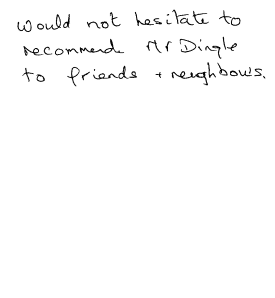 would not hesitate to
recommend Mr Dingle
to friends + neighbours.